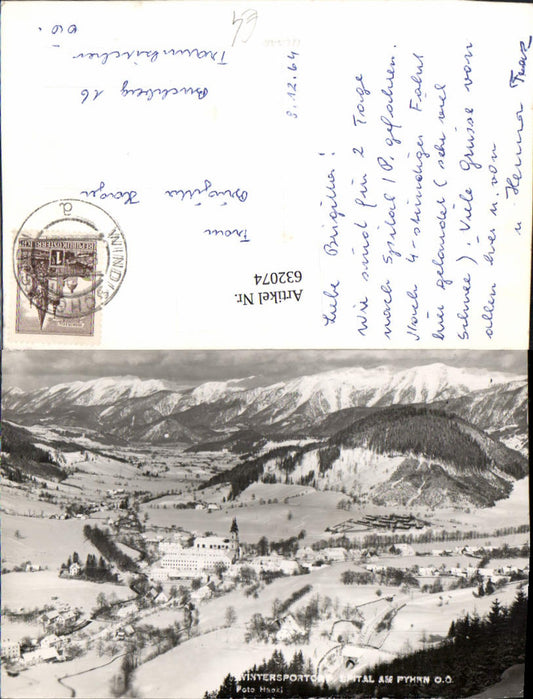 8.12.64
Liebe Brigitta!
Wir sind für 2 Tage
nach Spital/P. gefahren.
Nach 4-stündiger Fahrt
hier gelandet (sehr viel
Schnee). Viele Grüsse von
allen hier u. von
u. Franz
Frau
Brigitta
Buchberg 16
Traunkirchen
O.Ö.
REPUBLIK ÖSTERREICH
WINDISCH
Artikel Nr.
632074
WINTERSPORTORT SPITAL AM PYHRN O.Ö.
Foto